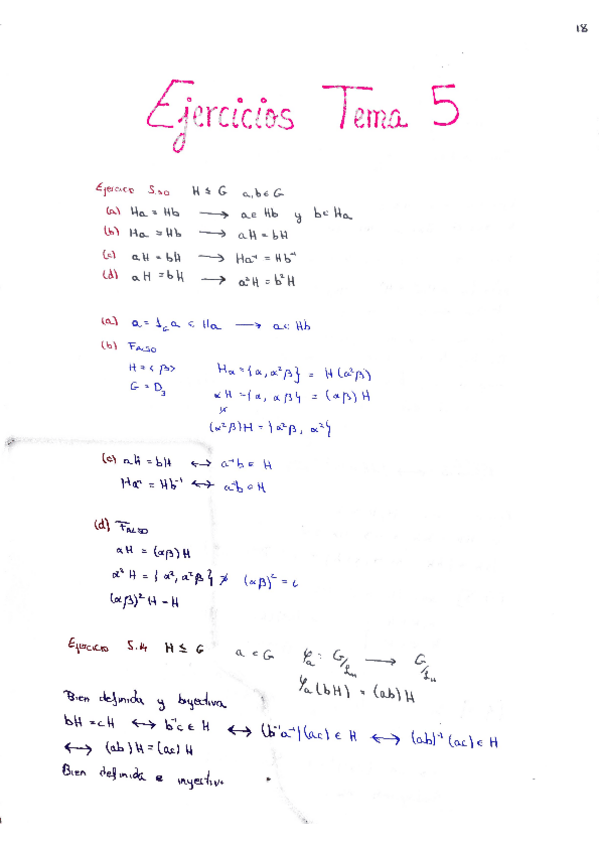 18
Ejercicios Tema 5
Ejercicio 5.10 H ≤ G a,b ∈ G
(a) Ha = Hb ⟶ a ∈ Hb y b ∈ Ha
(b) Ha = Hb ⟶ aH = bH
(c) aH = bH ⟶ Ha⁻¹ = Hb⁻¹
(d) aH = bH ⟶ a²H = b²H
(a) a = 1_G a ∈ Ha ⟶ a ∈ Hb
(b) FALSO
H = <β> Hα = {α, α²β} = H(α²β)
G = D₃ αH = {α, αβ} = (αβ)H
(α²β)H = {α²β, α²}
(c) aH = bH ⟷ a⁻¹b ∈ H
Ha⁻¹ = Hb⁻¹ ⟷ a⁻¹b ∈ H
(d) FALSO
αH = (αβ)H
α²H = {α², α²β} ∌ (αβ)² = ι
(αβ)²H = H
Ejercicio 5.14 H ≤ G a ∈ G φₐ: G/ ⟶ G/
φₐ(bH) = (ab)H
Bien definida y biyectiva
bH = cH ⟷ b⁻¹c ∈ H ⟷ (b⁻¹a⁻¹)(ac) ∈ H ⟷ (ab)⁻¹(ac) ∈ H
⟷ (ab)H = (ac)H
Bien definida e inyectiva